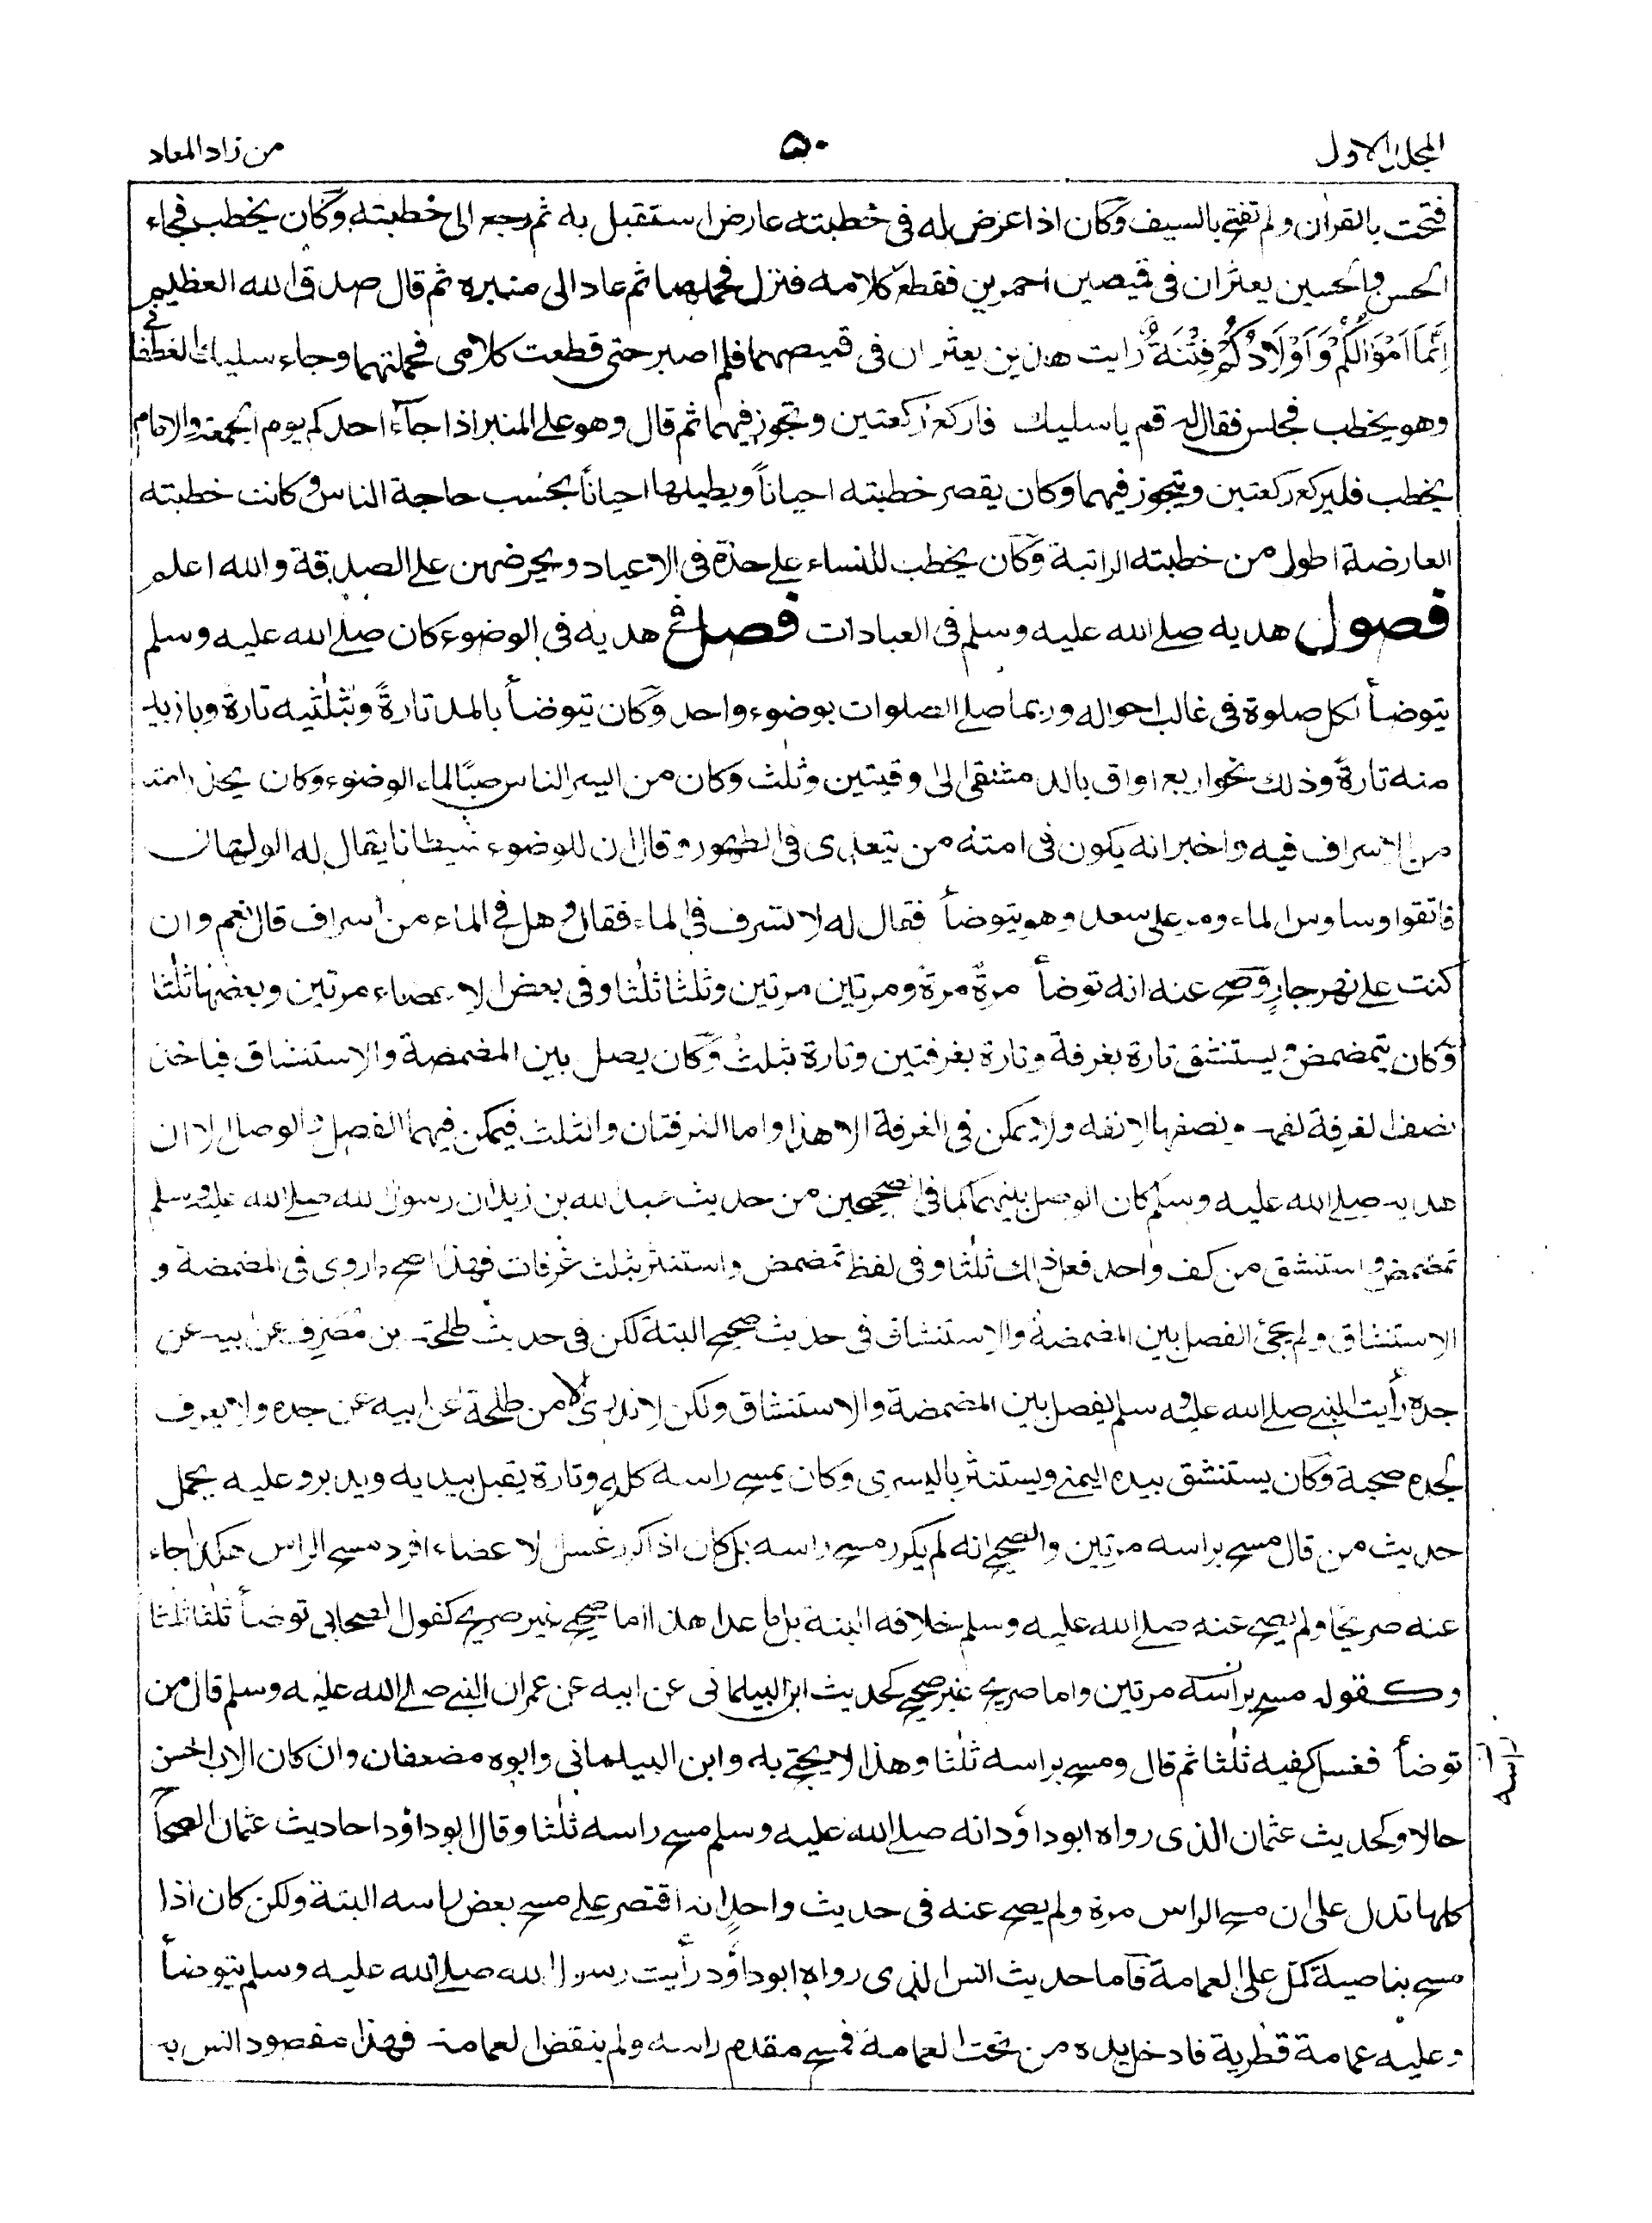 المجلد الاول
٥٠
من زاد المعاد
فتحت بالقران ولم تفتح بالسيف وكان اذا عرض له في خطبته عارض استقبل به ثم رجع الى خطبته وكان يخطب فجاء
الحسن والحسين يعثران في قميصين احمرين فقطع كلامه فنزل فحملهما ثم عاد الى منبره ثم قال صدق الله العظيم
اِنَّمَا اَمْوَالُكُمْ وَاَوْلَادُكُمْ فِتْنَةٌ رايت هذين يعثران في قميصهما فلم اصبر حتى قطعت كلامى فحملتهما وجاء سليك الغطفانى
وهو يخطب فجلس فقال له قم يا سليك فاركع ركعتين وتجوز فيهما ثم قال وهو على المنبر اذا جاء احدكم يوم الجمعة والامام
يخطب فليركع ركعتين ويتجوز فيهما وكان يقصر خطبته احياناً ويطيلها احياناً بحسب حاجة الناس وكانت خطبته
العارضة اطول من خطبته الراتبة وكان يخطب للنساء على حدة فى الاعياد ويحرضهن على الصدقة والله اعلم
فصول هديه صلى الله عليه وسلم فى العبادات فصل فى هديه فى الوضوء كان صلى الله عليه وسلم
يتوضأ لكل صلوة فى غالب احواله وربما صلى الصلوات بوضوء واحد وكان يتوضأ بالمد تارةً وبثلثيه تارة وبازيد
منه تارةً وذلك نحو اربع اواق بالدمشقى الى وقيتين وثلث وكان من ايسر الناس صبًّا لماء الوضوء وكان يحذر امته
من الاسراف فيه واخبر انه يكون فى امته من يتعدى فى الطهور وقال ان للوضوء شيطانا يقال له الولهان
فاتقوا وساوس الماء ومر على سعد وهو يتوضأ فقال له لا تسرف فى الماء فقال وهل فى الماء من اسراف قال نعم وان
كنت على نهر جارٍ وصح عنه انه توضأ مرةً مرةً ومرتين مرتين وثلثا ثلثا وفى بعض الاعضاء مرتين وبعضها ثلثا
وكان يتمضمض ويستنشق تارة بغرفة وتارة بغرفتين وتارة بثلث وكان يصل بين المضمضة والاستنشاق فياخذ
نصف الغرفة لفمه ونصفها لانفه ولا يمكن فى الغرفة الا هذا واما الغرفتان والثلث فيمكن فيهما الفصل والوصل الا ان
هديه صلى الله عليه وسلم كان الوصل بينهما كما فى الصحيحين من حديث عبد الله بن زيد ان رسول الله صلى الله عليه وسلم
تمضمض واستنشق من كف واحد فعل ذلك ثلثا وفى لفظ تمضمض واستنثر بثلث غرفات فهذا اصح ما روى فى المضمضة و
الاستنشاق ولم يجئ الفصل بين المضمضة والاستنشاق فى حديث صحيح البتة لكن فى حديث طلحة بن مُصَرِّف عن ابيه عن
جده رأيت النبى صلى الله عليه وسلم يفصل بين المضمضة والاستنشاق ولكن لا ندرى الا من طلحة عن ابيه عن جده ولا يعرف
لجده صحبة وكان يستنشق بيده اليمنى ويستنثر باليسرى وكان يمسح راسه كله وتارة يقبل بيديه ويدبر وعليه يحمل
حديث من قال مسح براسه مرتين والصحيح انه لم يكرر مسح راسه بل كان اذا كرر غسل الاعضاء افرد مسح الراس هكذا جاء
عنه صريحًا ولم يصح عنه صلى الله عليه وسلم خلافه البتة بل ما عدا هذا اما صحيح غير صريح كقول الصحابى توضأ ثلثا ثلثا
وكقوله مسح براسه مرتين واما صريح غير صحيح كحديث ابن البيلمانى عن ابيه عن عمر ان النبى صلى الله عليه وسلم قال من
توضأ فغسل كفيه ثلثا ثم قال ومسح براسه ثلثا وهذا لا يحتج به وابن البيلمانى وابوه مضعفان وان كان الاب احسن
حالا وكحديث عثمان الذى رواه ابو داؤد انه صلى الله عليه وسلم مسح راسه ثلثا وقال ابو داؤد احاديث عثمان الصحاح
كلها تدل على ان مسح الراس مرة ولم يصح عنه فى حديث واحدٍ انه اقتصر على مسح بعض راسه البتة ولكن كان اذا
مسح بناصيته كمّل على العمامة فاما حديث انس الذى رواه ابو داؤد رأيت رسول الله صلى الله عليه وسلم يتوضأ
وعليه عمامة قطرية فادخل يده من تحت العمامة فمسح مقدم راسه ولم ينقض العمامة فهذا مقصود انس به
راسه